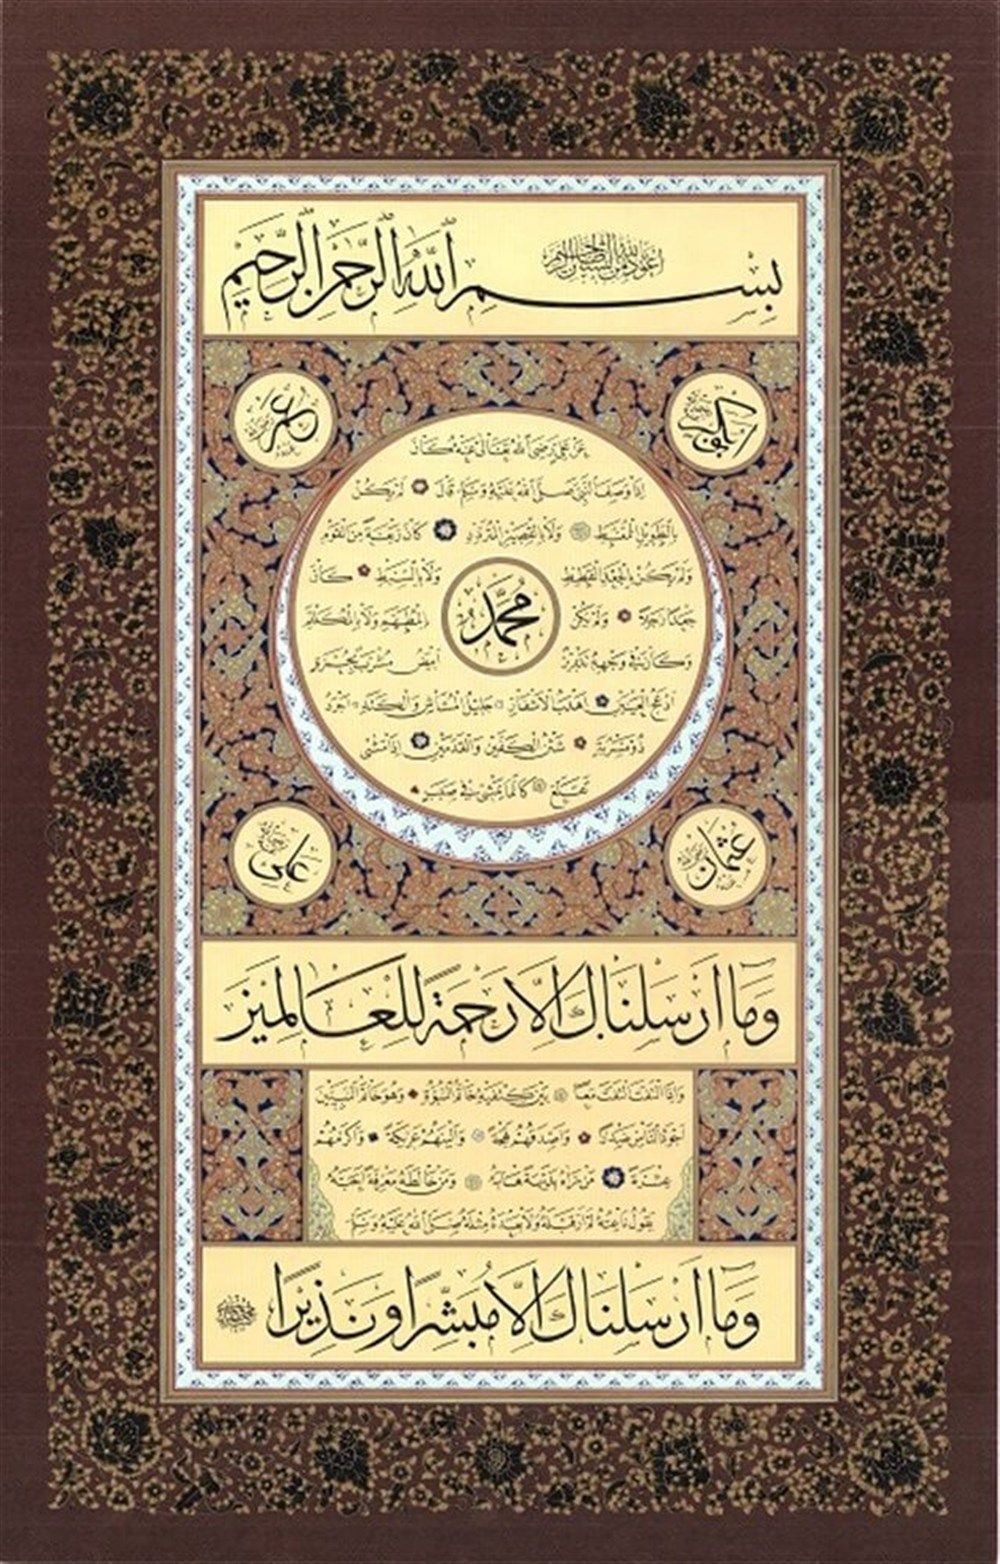 أعوذ بالله من الشيطان الرجيم
بِسْمِ اللهِ الرَّحْمٰنِ الرَّحِيمِ
ابوبكر
عمر
عَنْ عَلِيٍّ رَضِيَ اللهُ تَعَالٰى عَنْهُ كَانَ
إِذَا وَصَفَ النَّبِيَّ صَلَّى اللهُ عَلَيْهِ وَسَلَّمَ قَالَ لَمْ يَكُنْ
بِالطَّوِيلِ الْمُمَّغِطِ وَلَا بِالْقَصِيرِ الْمُتَرَدِّدِ كَانَ رَبْعَةً مِنَ الْقَوْمِ
وَلَمْ يَكُنْ بِالْجَعْدِ الْقَطَطِ وَلَا بِالسَّبِطِ كَانَ
جَعْدًا رَجِلًا وَلَمْ يَكُنْ بِالْمُطَهَّمِ وَلَا بِالْمُكَلْثَمِ
مُحَمَّد
وَكَانَ فِي وَجْهِهِ تَدْوِيرٌ أَبْيَضُ مُشْرَبٌ بِحُمْرَةٍ
أَدْعَجُ الْعَيْنَيْنِ أَهْدَبُ الْأَشْفَارِ جَلِيلُ الْمُشَاشِ وَالْكَتَدِ أَجْرَدُ
ذُو مَسْرُبَةٍ شَثْنُ الْكَفَّيْنِ وَالْقَدَمَيْنِ إِذَا مَشٰى
تَقَلَّعَ كَأَنَّمَا يَمْشِي فِي صَبَبٍ
عثمان
علي
وَمَا أَرْسَلْنَاكَ إِلَّا رَحْمَةً لِلْعَالَمِينَ
وَإِذَا الْتَفَتَ الْتَفَتَ مَعًا بَيْنَ كَتِفَيْهِ خَاتَمُ النُّبُوَّةِ وَهُوَ خَاتَمُ النَّبِيِّينَ
أَجْوَدُ النَّاسِ صَدْرًا وَأَصْدَقُهُمْ لَهْجَةً وَأَلْيَنُهُمْ عَرِيكَةً وَأَكْرَمُهُمْ
عِشْرَةً مَنْ رَآهُ بَدِيهَةً هَابَهُ وَمَنْ خَالَطَهُ مَعْرِفَةً أَحَبَّهُ
يَقُولُ نَاعِتُهُ لَمْ أَرَ قَبْلَهُ وَلَا بَعْدَهُ مِثْلَهُ صَلَّى اللهُ عَلَيْهِ وَسَلَّمَ
وَمَا أَرْسَلْنَاكَ إِلَّا مُبَشِّرًا وَنَذِيرًا